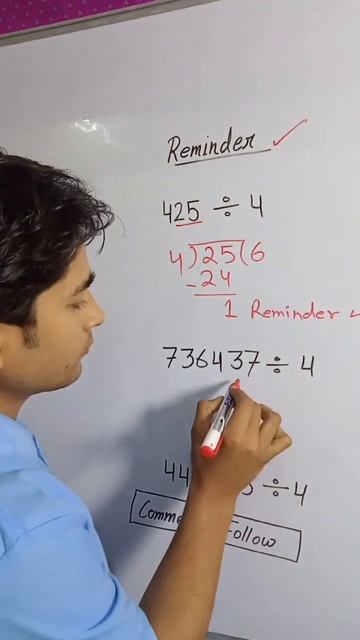 Reminder ✓
425 ÷ 4
4)25(6
-24
1 Reminder ✓
736437 ÷ 4
44 5 ÷ 4
Follow